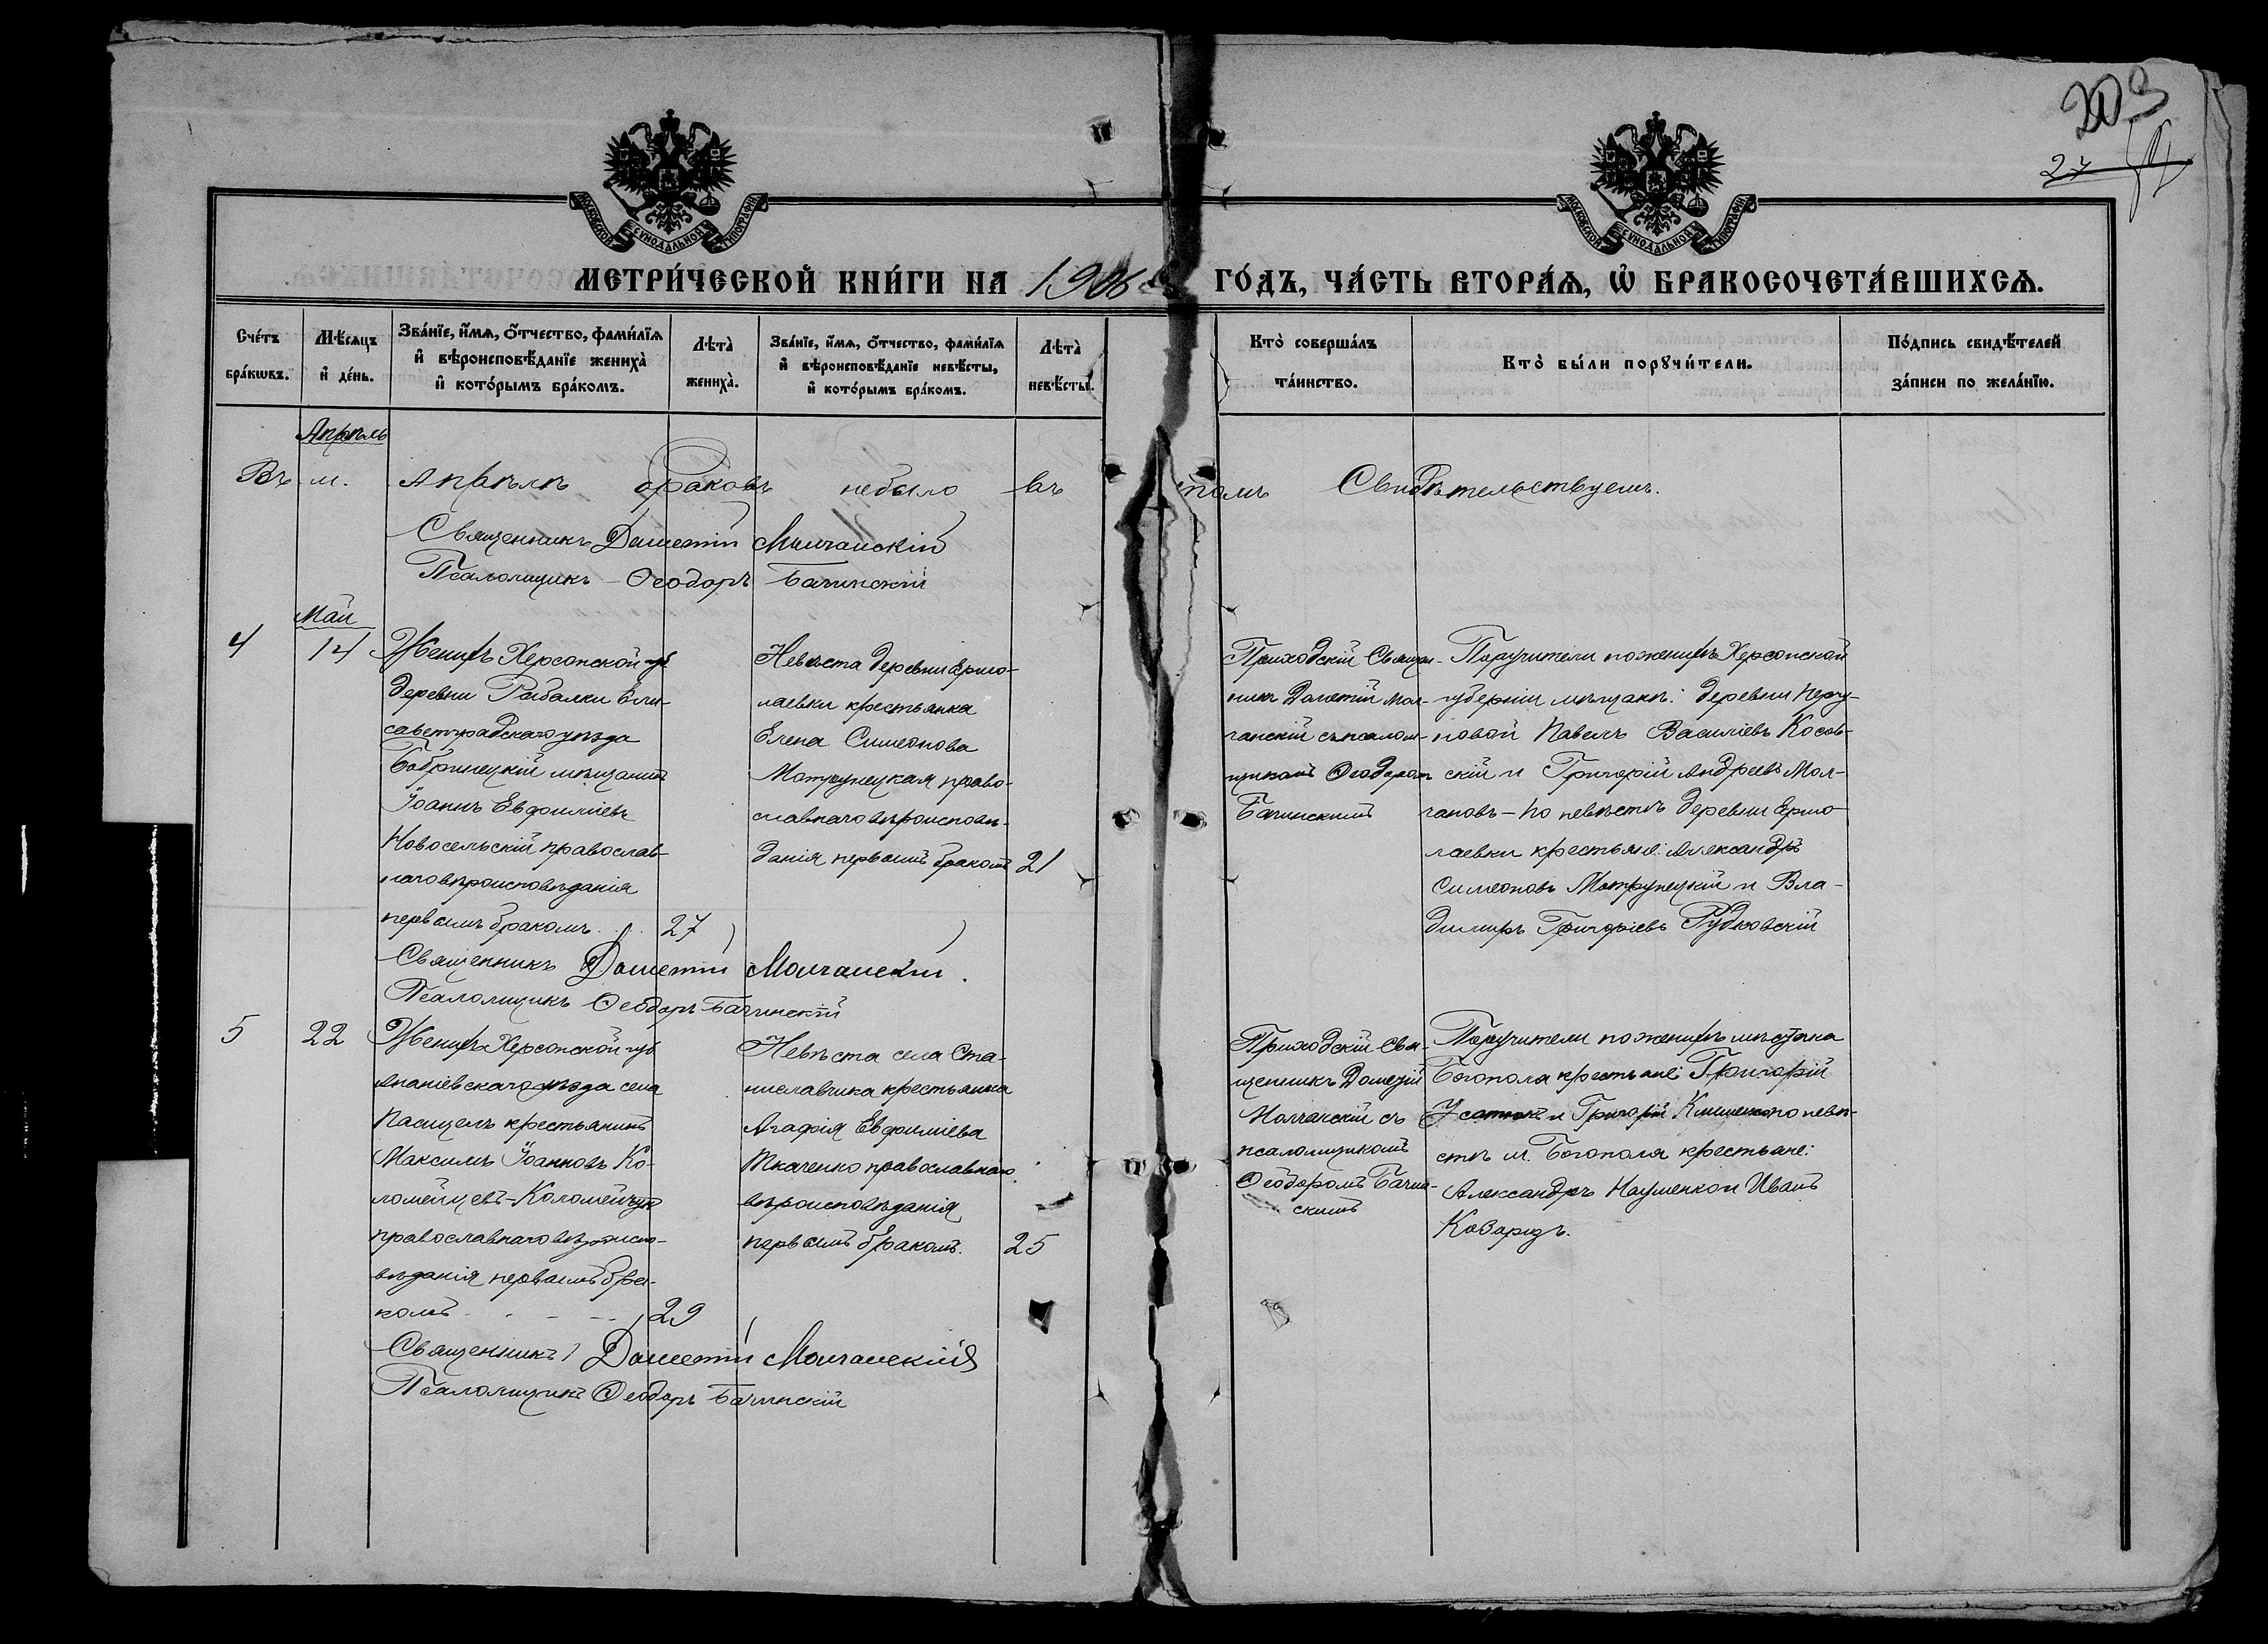 203
27
МОСКОВСКОЙ СУНОДАЛЬНОЙ ТИПОГРАФІИ
МОСКОВСКОЙ СУНОДАЛЬНОЙ ТИПОГРАФІИ
МЕТРИ́ЧЕСКОЙ КНИ́ГИ НА 1906 ГО́ДЪ, ЧА́СТЬ ВТОРА́Ѧ, Ѡ҆ БРАКОСОЧЕТА́ВШИХСѦ.
Сче́тъ бра́кѡвъ.
Мѣ́сяцъ и҆ де́нь.
Зва́нїе, и҆́мѧ, ѻ҆́тчество, фами́лїѧ и҆ вѣроисповѣ́данїе жениха̀ и҆ кото́рымъ бра́комъ.
Лѣта̀ жениха̀.
Зва́нїе, и҆́мѧ, ѻ҆́тчество, фами́лїѧ и҆ вѣроисповѣ́данїе невѣ́сты, и҆ кото́рымъ бра́комъ.
Лѣта̀ невѣ́сты.
Кто̀ соверша́лъ та́инство.
Кто̀ бы́ли порꙋчи́тели.
По́дпись свидѣ́телей за́писи по жела́нїю.
Апрѣль
Въ м. Апрѣлѣ браковъ небыло въ томъ Свидѣтельствуемъ.
Священникъ Дометій Молчанскій
Псаломщикъ – Ѳеодоръ Бачинскій
Май
4
14
Женихъ Херсонской губ
деревни Рыбалки Ели-
саветградскаго уѣзда
Бобринецкій мѣщанинъ
Іоаннъ Евфиміевъ
Новосельскій православ-
наго вѣроисповѣданія
первымъ бракомъ
27
Невѣста деревни Ермо-
лаевки крестьянка
Елена Симеонова
Мотрунецкая право-
славнаго вѣроисповѣ-
данія первымъ бракомъ
21
Приходскій Священ-
никъ Дометій Мол-
чанскій съ псалом-
щикомъ Ѳеодоромъ
Бачинскимъ
Поручители по женихѣ Херсонской
губерніи мѣщане: деревни
новой Павелъ Василіевъ Косов-
скій и Григорій Андреевъ Мол-
чановъ – по невѣстѣ деревни Ермо-
лаевки крестьяне: Александръ
Симеоновъ Мотрунецкій и Вла-
димиръ Григоріевъ Рудковскій
Священникъ Дометій Молчанскій.
Псаломщикъ Ѳеодоръ Бачинскій
5
22
Женихъ Херсонской губ
Ананіевскаго уѣзда села
Пасицелъ крестьянинъ
Максимъ Іоанновъ Ко-
ломейцевъ-Коломейчукъ
православнаго вѣроиспо-
вѣданія первымъ бра-
комъ
29
Невѣста села Ста-
ниславчика крестьянка
Агафія Евфиміева
Ткаченко православнаго
вѣроисповѣданія
первымъ бракомъ.
25
Приходскій Свя-
щенникъ Дометій
Молчанскій съ
псаломщикомъ
Ѳеодоромъ Бачин-
скимъ
Поручители по женихѣ мѣстечка
Богополя крестьяне: Григорій
и Григорій Клименко по невѣ-
стѣ м. Богополя крестьяне:
Александръ Науменко и Иванъ
Священникъ Дометій Молчанскій
Псаломщикъ Ѳеодоръ Бачинскій